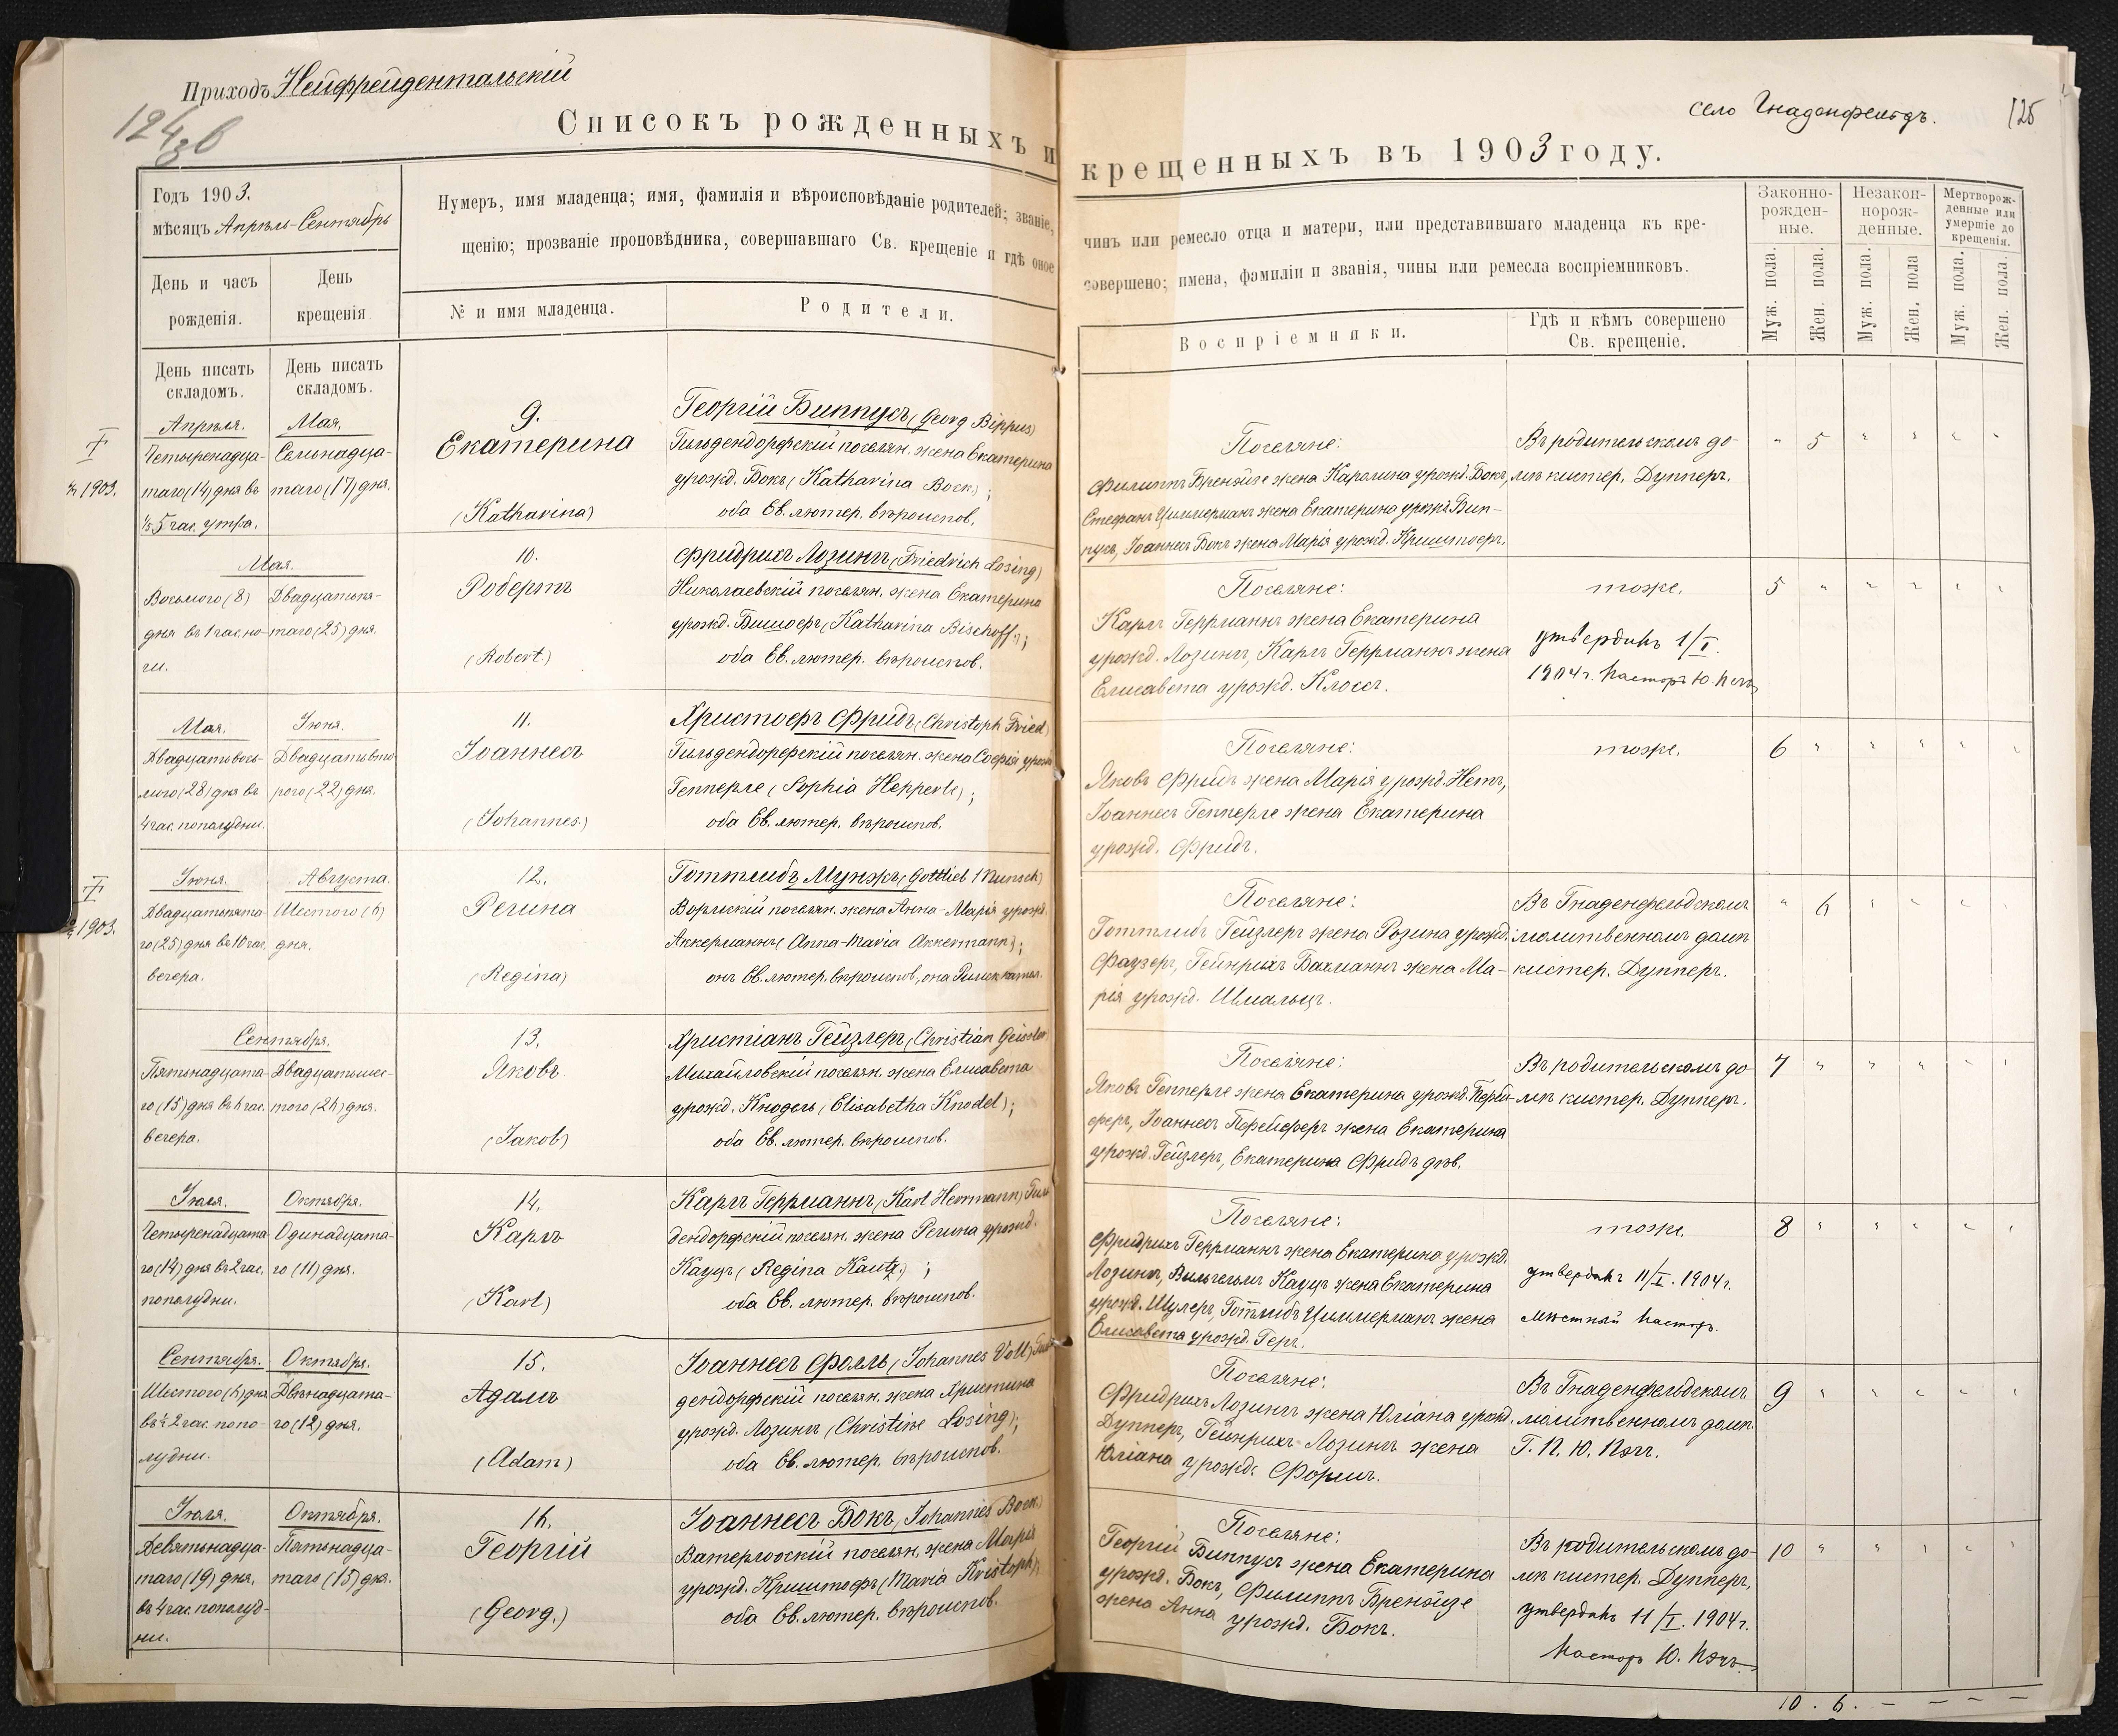 Приходъ Нейфрейдентальскій
124 об
Списокъ рожденныхъ и
Годъ 1903.
мѣсяцъ Апрѣль-Сентябрь
Нумеръ, имя младенца; имя, фамилія и вѣроисповѣданіе родителей; званіе,
щенію; прозваніе проповѣдника, совершавшаго Св. крещеніе и гдѣ оное
День и часъ
рожденія.
День
крещенія
№ и имя младенца.
Родители.
День писать
складомъ.
День писать
складомъ.
Апрѣля.
Четыренадца-
таго (14) дня въ
½5 час. утра.
Мая.
Семьнадца-
таго (17) дня.
9.
Екатерина
(Katharina)
Георгій Биппусъ (Georg Bippus)
Гильдендорфскій поселян. жена Екатерина
урожд. Бокъ (Katharina Bock);
оба Ев. лютер. вѣроиспов.
1903.
Мая.
Восьмого (8)
дня въ 1 час. но-
чи.
Двадцатьпя-
таго (25) дня.
10.
Робертъ
(Robert)
Фридрихъ Лозингъ (Friedrich Losing)
Николаевскій поселян. жена Екатерина
урожд. Бишофъ (Katharina Bischoff);
оба Ев. лютер. вѣроиспов.
Мая.
Двадцатьвось-
мого (28) дня въ
4 час. пополудни.
Іюня.
Двадцатьвто-
рого (22) дня.
11.
Іоаннесъ
(Johannes)
Христофъ Фридъ (Christoph Fried)
Гильдендорфскій поселян. жена Софія урожд.
Гепперле (Sophia Hepperle);
оба Ев. лютер. вѣроиспов.
Іюня.
Двадцатьпята-
го (25) дня въ 10 час.
вечера.
Августа.
Шестого (6)
дня.
12.
Регина
(Regina)
Готтлибъ Мунжъ (Gottlieb Munsch)
Вормскій поселян. жена Анна-Марія урожд.
Аккерманнъ (Anna-Maria Akkermann);
онъ Ев. лютер. вѣроиспов., она Римск. катол.
1903.
Сентября.
Пятьнадцата-
го (15) дня въ 6 час.
вечера.
Двадцатьшес-
того (26) дня.
13.
Яковъ
(Jakob)
Христіанъ Гейзлеръ (Christian Geissler
Михайловскій поселян. жена Елисавета
урожд. Кнодель (Elisabetha Knodel);
оба Ев. лютер. вѣроиспов.
Іюля.
Четыренадцата-
го (14) дня въ 2 час.
пополудни.
Октября.
Одинадцата-
го (11) дня.
14.
Карлъ
(Karl)
Карлъ Геррманнъ (Karl Herrmann) Гиль
дендорфскій поселян. жена Регина урожд.
Кауцъ (Regina Kautz);
оба Ев. лютер. вѣроиспов.
Сентября.
Шестого (6) дня
въ ½ 2 час. попо-
лудни.
Октября.
Двѣнадцата-
го (12) дня.
15.
Адамъ
(Adam)
Іоаннесъ Фолль (Johannes Voll) Гиль
дендорфскій поселян. жена Христина
урожд. Лозингъ (Christine Losing);
оба Ев. лютер. вѣроиспов.
Іюля.
Девятьнадца-
таго (19) дня,
въ 4 час. пополуд-
ни.
Октября.
Пятьнадца-
таго (15) дня.
16.
Георгій
(Georg.)
Іоаннесъ Бокъ (Johannes Bock)
Ватерлооскій поселян. жена Марія
урожд. Криштофъ (Maria Kristoph);
оба Ев. лютер. вѣроиспов.
село Гнаденфельдъ.
125
крещенныхъ въ 1903 году.
чинъ или ремесло отца и матери, или представившаго младенца къ кре-
совершено; имена, фамиліи и званія, чины или ремесла воспріемниковъ.
Воспріемники.
Гдѣ и кѣмъ совершено
Св. крещеніе.
Законно-
рожден-
ные.
Незакон-
норож-
денные.
Мертворож-
денные или
умершіе до
крещенія.
Муж. пола.
Жен. пола.
Муж. пола.
Жен. пола
Муж. пола.
Жен. пола.
Поселяне:
Филиппъ Брензйзе жена Каролина урожд. Бокъ,
Стефанъ Циммерманъ жена Екатерина урожд. Бип-
пусъ, Іоаннесъ Бокъ жена Марія урожд. Криштофъ.
Въ родительскомъ до-
мѣ кистер. Дупперъ.
" 5 " " " "
Поселяне:
Карлъ Геррманнъ жена Екатерина
урожд. Лозингъ, Карлъ Геррманнъ жена
Елисавета урожд. Клоссъ.
тоже.
утвердилъ 1/I.
1904 г. Пасторъ Ю. Пэчъ
5 " " " " "
Поселяне:
Яковъ Фридъ жена Марія урожд. Нетъ,
Іоаннесъ Гепперле жена Екатерина
урожд. Фридъ.
тоже.
6 " " " " "
Поселяне:
Готтлибъ Гейзлеръ жена Розина урожд.
Фаузеръ, Гейнрихъ Бахманнъ жена Ма-
рія урожд. Шмальцъ.
Въ Гнаденфельдскомъ
молитвенномъ домѣ
кистер. Дупперъ.
" 6 " " " "
Поселяне:
Яковъ Гепперле жена Екатерина урожд. Пфей-
феръ, Іоаннесъ Пфейферъ жена Екатерина
урожд. Гейзлеръ, Екатерина Фридъ дѣв.
Въ родительскомъ до-
мѣ кистер. Дупперъ.
7 " " " " "
Поселяне:
Фридрихъ Геррманнъ жена Екатерина урожд.
Лозингъ, Вильгельмъ Кауцъ жена Екатерина
урожд. Шулеръ, Готлибъ Циммерманъ жена
Елисавета урожд. Геръ.
тоже.
утвердилъ 11/I. 1904 г.
мѣстный Пасторъ.
8 " " " " "
Поселяне:
Фридрихъ Лозингъ жена Юліана урожд.
Дупперъ, Гейнрихъ Лозингъ жена
Юліана урожд. Формъ.
Въ Гнаденфельдскомъ
молитвенномъ домѣ.
Г. П. Ю. Пэчъ.
9 " " " " "
Поселяне:
Георгій Биппусъ жена Екатерина
урожд. Бокъ, Филиппъ Брензйзе
жена Анна урожд. Бокъ.
Въ родительскомъ до-
мѣ кистер. Дупперъ,
утвердилъ 11/I. 1904 г.
Пасторъ Ю. Пэчъ.
10 " " " " "
10. 6. – – – –